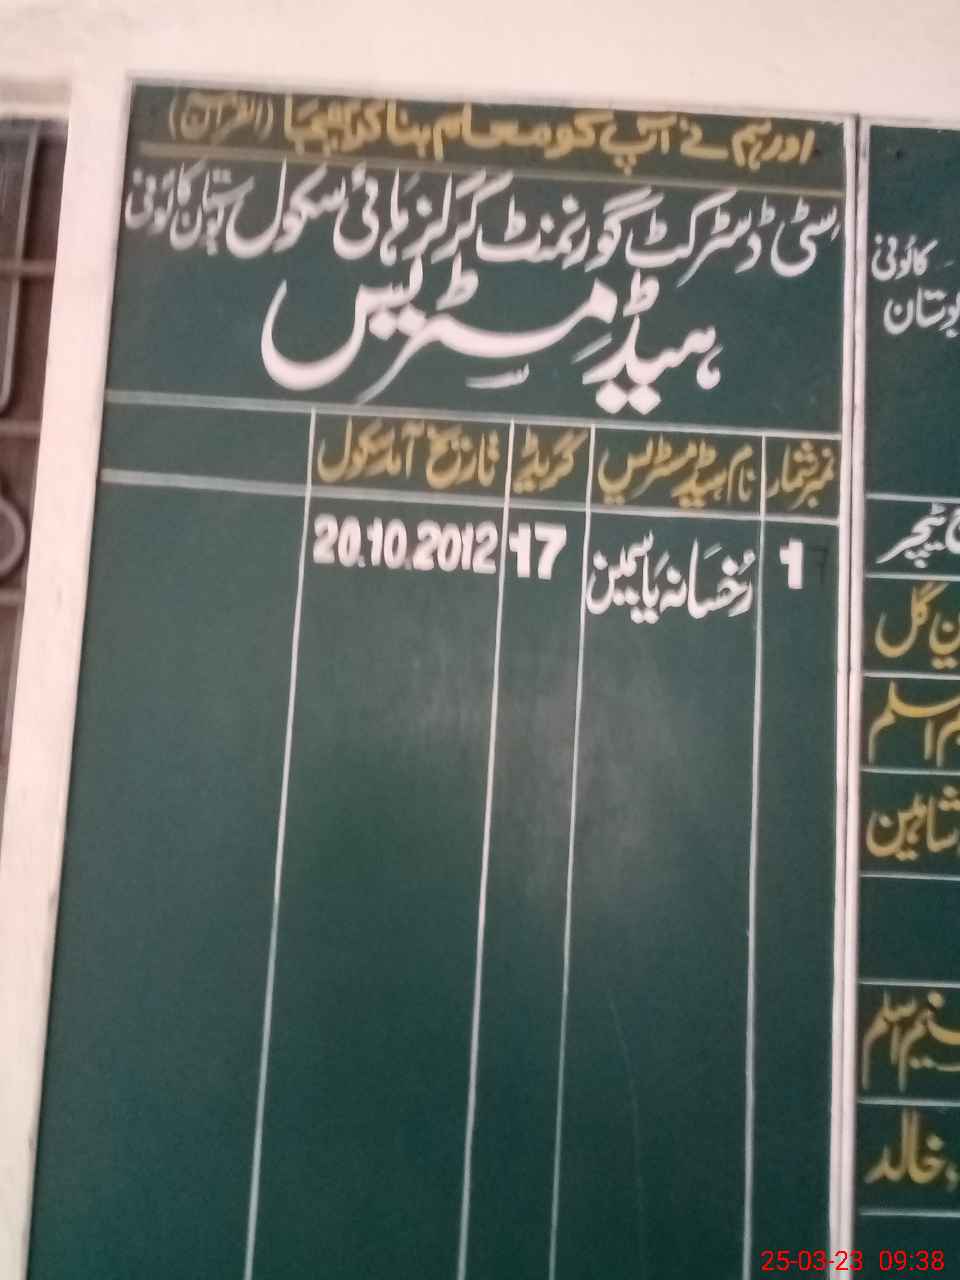 اور ہم نے آپ کو معلم بنا کر بھیجا (القرآن)
سٹی ڈسٹرکٹ گورنمنٹ گرلز ہائی سکول بوستان کالونی
ہیڈ مسٹریس
نمبر شمار نام ہیڈ مسٹریس گریڈ تاریخ آمد سکول
1 رُخسانہ یاسمین 17 20.10.2012
کالونی
بوستان
ٹیچر
گل
اسلم
شاہین
اسلم
خالد
25-03-23 09:38